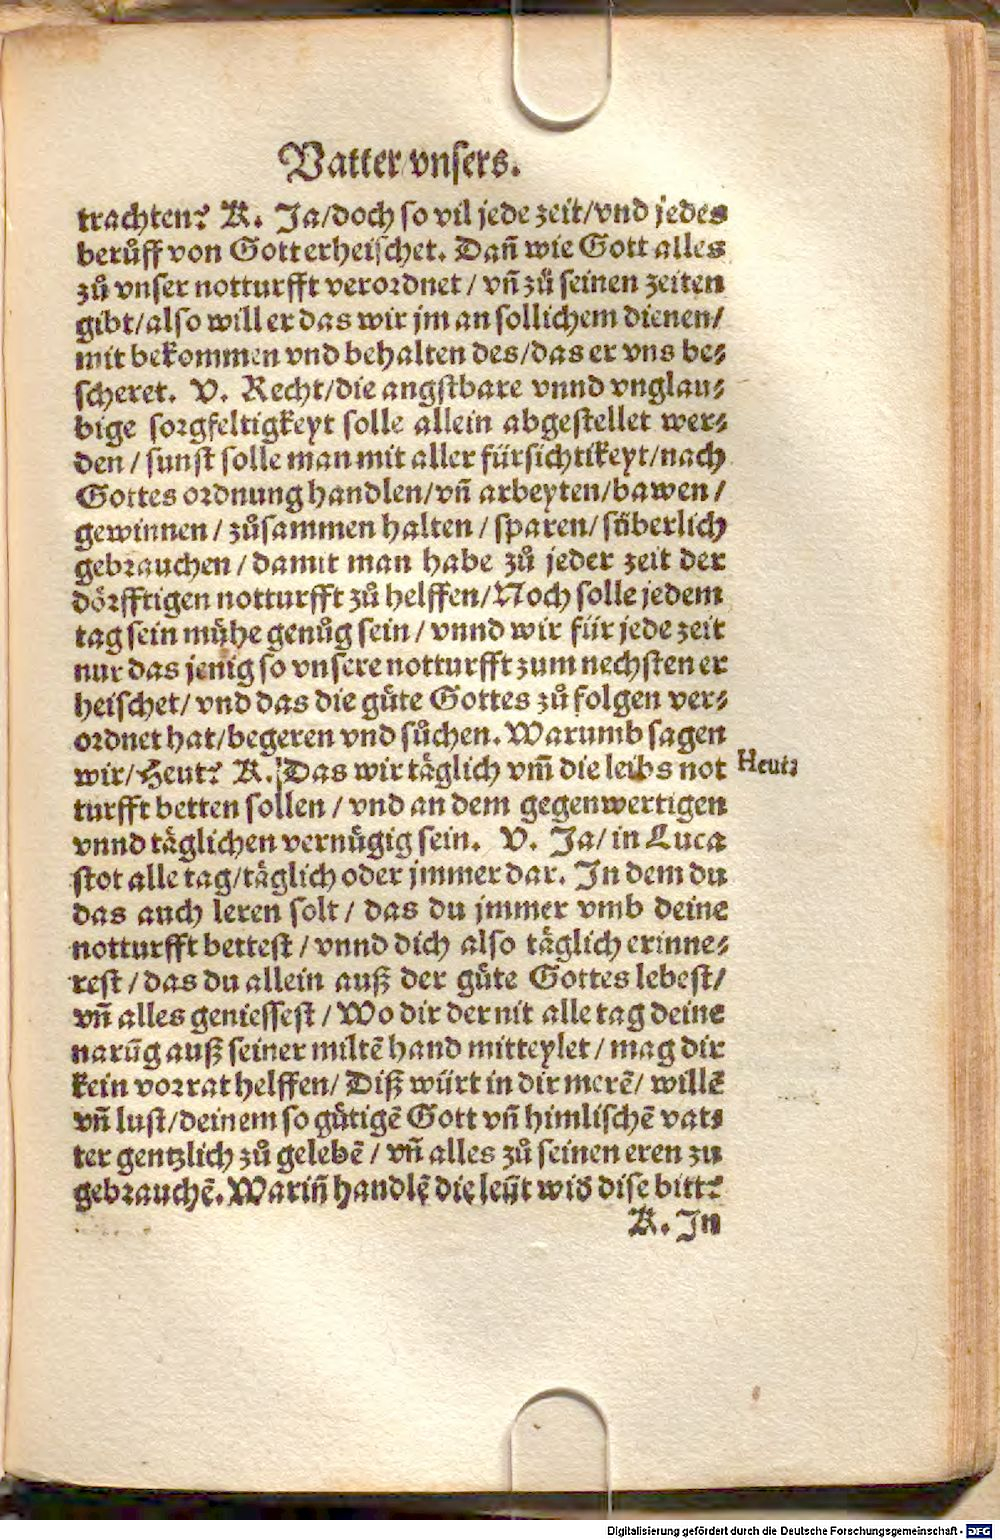 Vatter vnsers.
trachten? K. Ja/doch so vil jede zeit/vnd jedes
berůff von Gott erheischet. Dañ wie Gott alles
zů vnser notturfft verordnet / vñ zů seinen zeiten
gibt/also will er das wir jm an sollichem dienen/
mit bekommen vnd behalten des/das er vns be⸗
scheret. V. Recht/die angstbare vnnd vnglau⸗
bige sorgfeltigkeyt solle allein abgestellet wer⸗
den / sunst solle man mit aller fürsichtikeyt/nach
Gottes ordnung handlen/vñ arbeyten/bawen/
gewinnen / zůsammen halten / sparen/ süberlich
gebrauchen / damit man habe zů jeder zeit der
dörfftigen notturfft zů helffen/Noch solle jedem
tag sein mühe genůg sein / vnnd wir für jede zeit
nur das jenig so vnsere notturfft zum nechsten er
heischet/ vnd das die güte Gottes zů folgen ver⸗
ordnet hat/begeren vnd sůchen. Warumb sagen
wir/Heut? K. Das wir täglich vm̃ die leibs not
turfft betten sollen / vnd an dem gegenwertigen
vnnd täglichen vernügig sein. V. Ja/ in Luca
stot alle tag/täglich oder jmmer dar. In dem du
das auch leren solt / das du jmmer vmb deine
notturfft bettest / vnnd dich also täglich erinne⸗
rest / das du allein auß der güte Gottes lebest/
vñ alles geniessest / Wo dir der nit alle tag deine
narũg auß seiner miltẽ hand mitteylet / mag dir
kein vorrat helffen/ Diß würt in dir merẽ/ willẽ
vñ lust/deinem so gütigẽ Gott vñ himlischẽ vat⸗
ter gentzlich zů gelebẽ / vñ alles zů seinen eren zu
gebrauchẽ. Wariñ handlẽ die leüt wid dise bitt?
K. In
Heut?
Digitalisierung gefördert durch die Deutsche Forschungsgemeinschaft - DFG